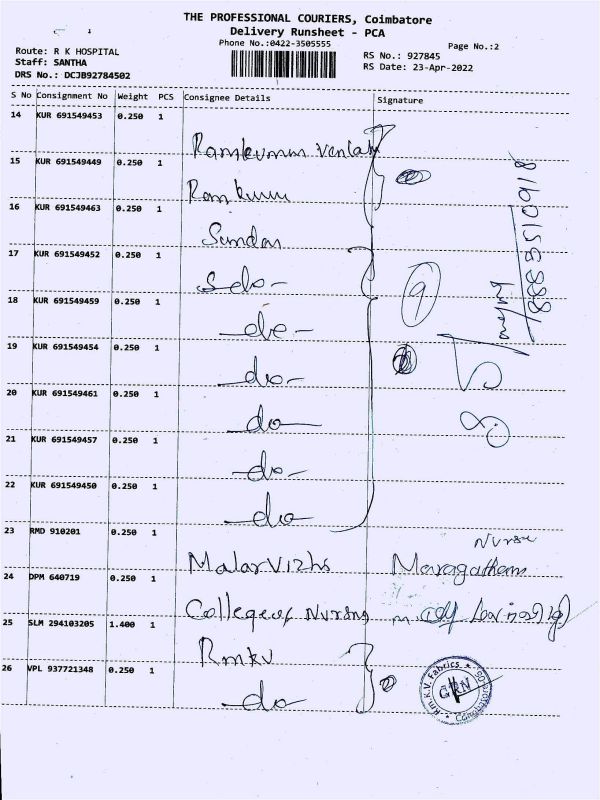 THE PROFESSIONAL COURIERS, Coimbatore
Delivery Runsheet - PCA
Phone No.:0422-3505555
Page No.:2
Route: R K HOSPITAL
Staff: SANTHA
DRS No.: DCJB92784502
RS No.: 927845
RS Date: 23-Apr-2022
S No Consignment No Weight PCS Consignee Details Signature
14 KUR 691549453 0.250 1
15 KUR 691549449 0.250 1
Ram kumar
16 KUR 691549463 0.250 1
Sundar
17 KUR 691549452 0.250 1
- do -
18 KUR 691549459 0.250 1
- do -
9
19 KUR 691549454 0.250 1
- do -
20 KUR 691549461 0.250 1
do
21 KUR 691549457 0.250 1
- do -
22 KUR 691549450 0.250 1
do
23 RMD 910201 0.250 1
Nurse
Malarvizhi Maragatham
24 DPM 640719 0.250 1
College of Nursing
25 SLM 294103205 1.400 1
Rmkv
26 VPL 937721348 0.250 1
do
Rm.K.V. Fabrics
GRN